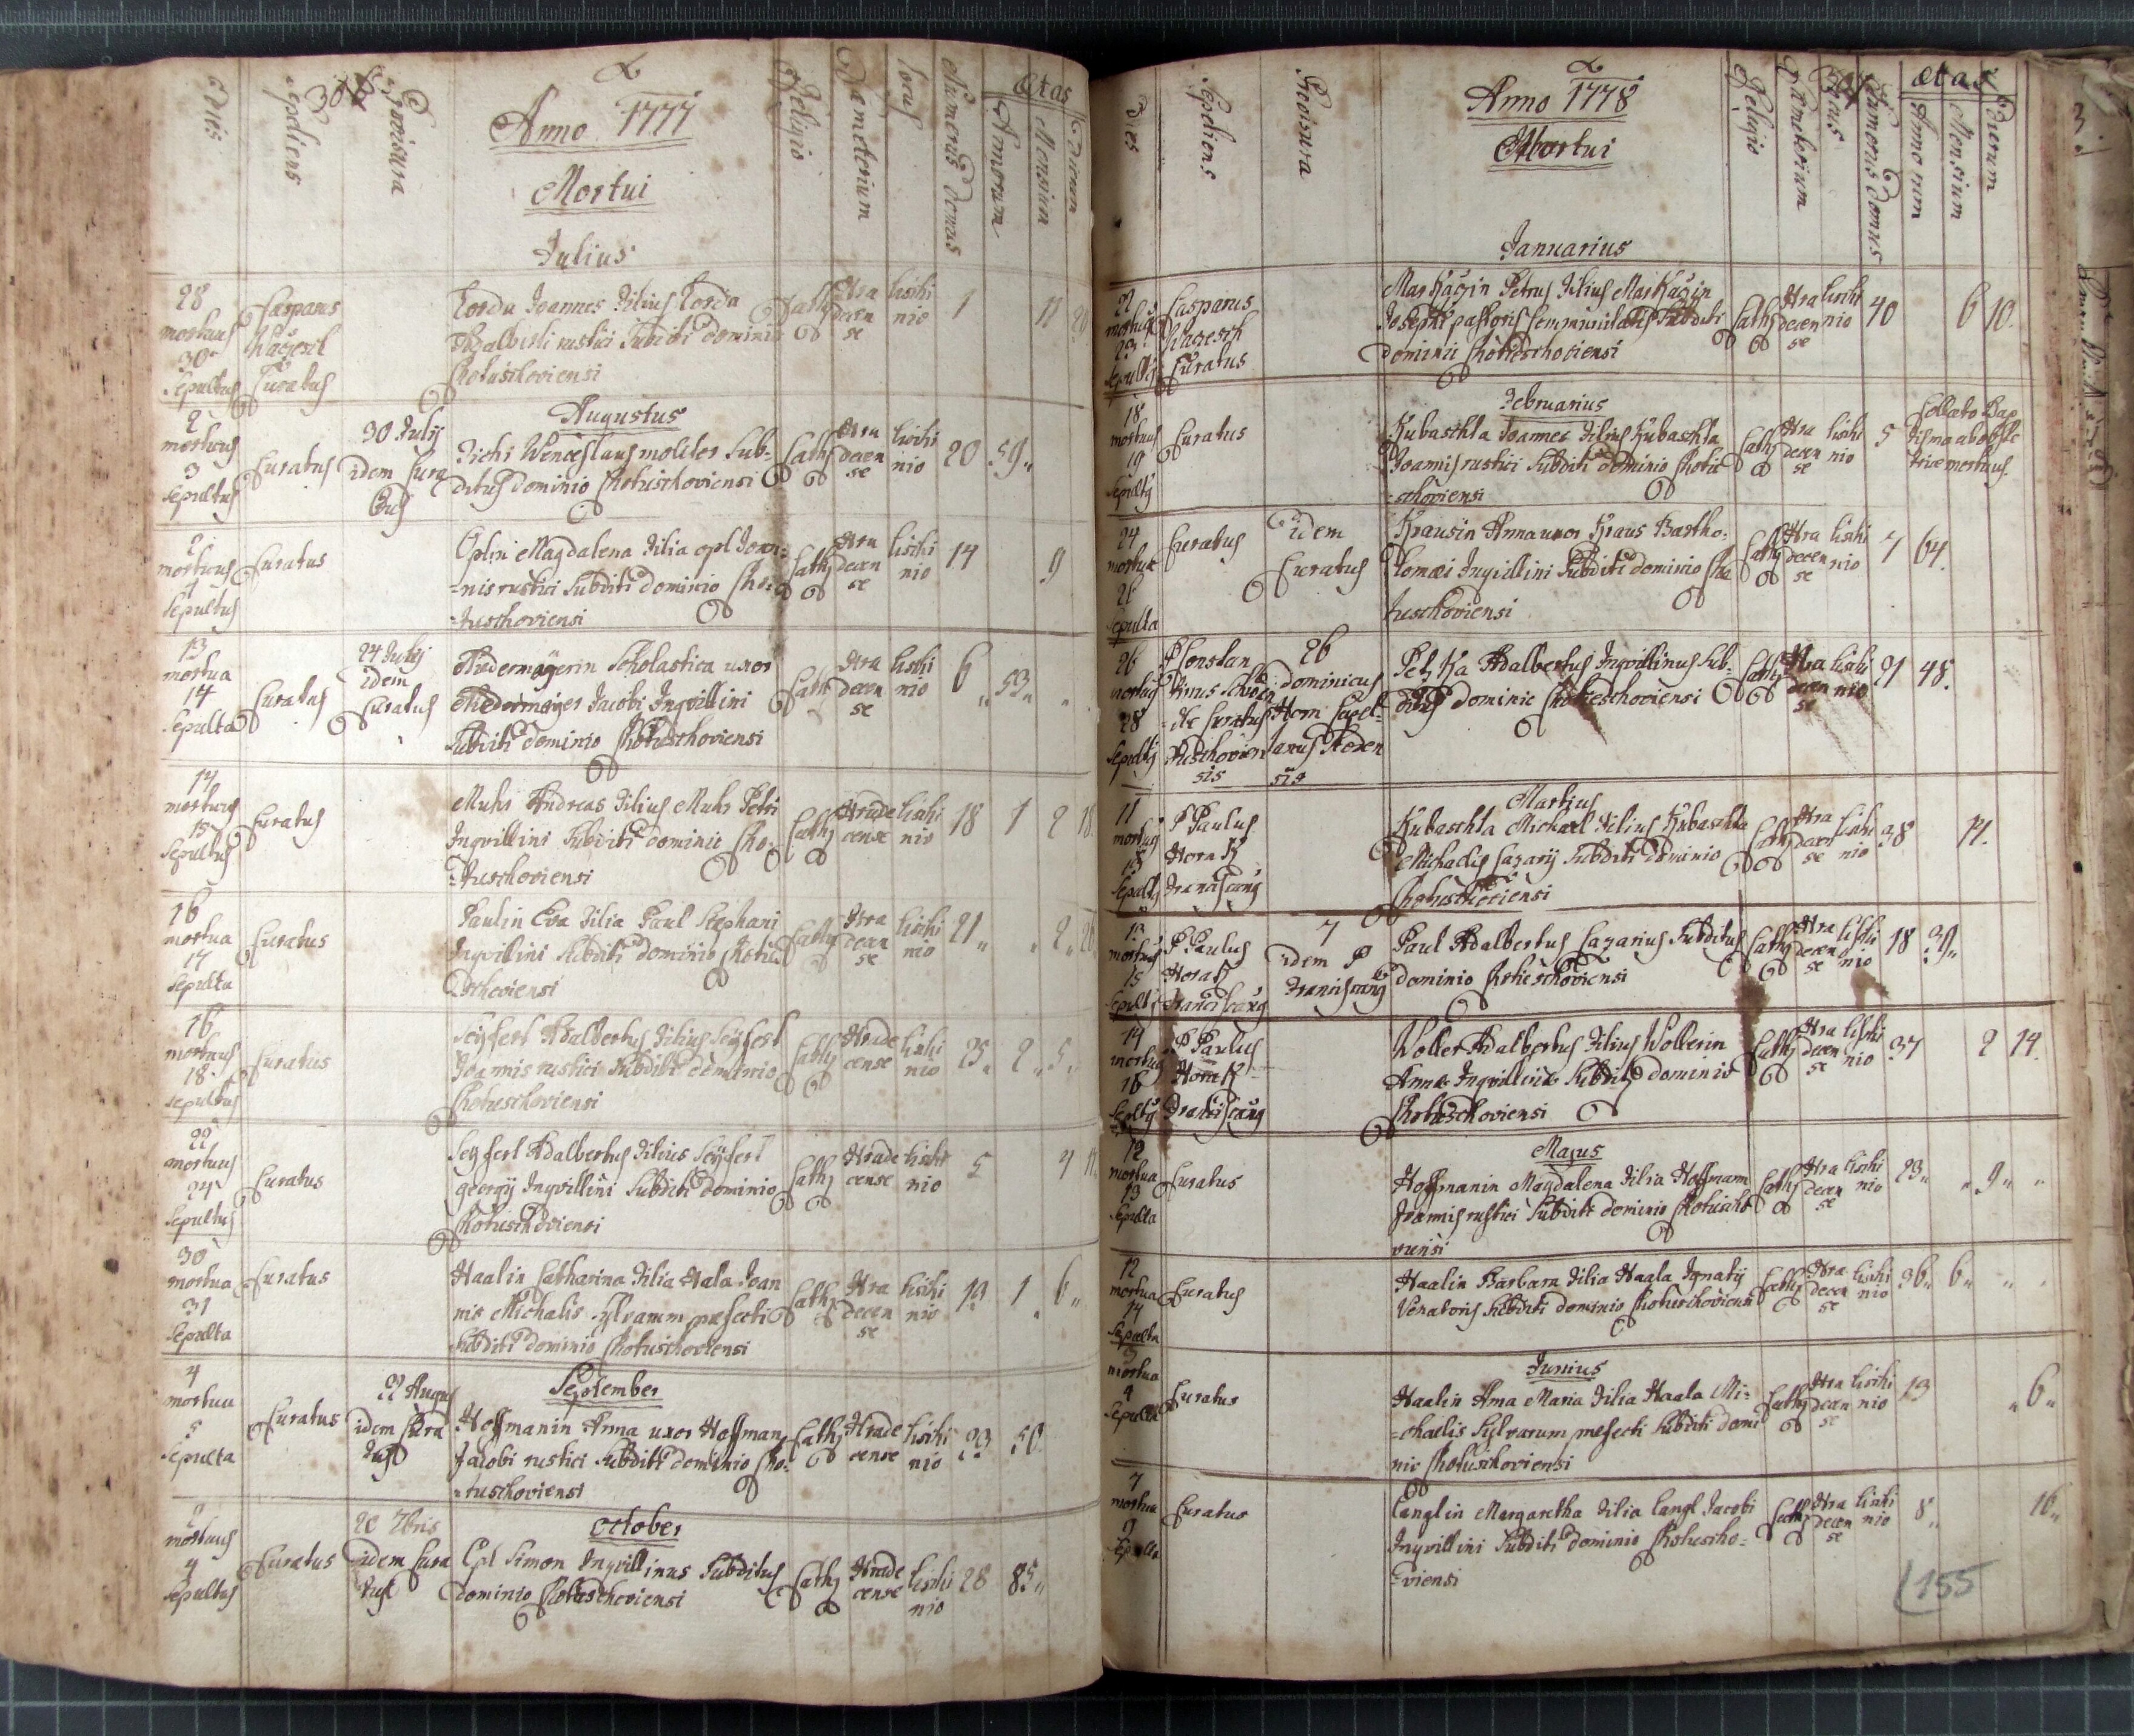 Dies
Sepeliens
Provisura
Anno 1777
Mortui
Religio
Cæmeterium
Locus
Numerus Domus
Ætas
Annorum
Mensium
Dierum
Julius
28
mortuus
30
Sepultus
Casparus
Curatus
Korda Joannes Filius Korda
Adalberti rustici Subditi dominio
Chotuschoviensi
Cath
Hra
decen
se
lischi
nio
1
11
Augustus
2
mortuus
3
Sepultus
Curatus
30 Julij
idem Cura
tus
Fichi Wenceslaus molitor Sub-
ditus dominio Chotuschoviensi
Cath
Hra
decen
se
lischi
nio
20
59
2
mortuus
4
Sepultus
Curatus
Oplin Magdalena Filia opl Joan-
-nis rustici Subditi dominio Cho-
-tuschoviensi
Cath
Hra
decen
se
lischi
nio
14
9
13
mortua
14
Sepulta
Curatus
24 Julij
idem
Curatus
Niedermayerin Scholastica uxor
Niedermayer Jacobi Inqvillini
Subditi dominio Chotuschoviensi
Cath
Hra
decen
se
lischi
nio
6
53
14
mortuus
15
Sepultus
Curatus
Muhr Andreas Filius Muhr Petri
Inqvillini Subditi dominio Cho-
-tuschoviensi
Cath
Hrade
cense
lischi
nio
18
1
2
18
16
mortua
17
Sepulta
Curatus
Paulin Eva Filia Paul Stephani
Inqvillini Subditi dominio Chotu-
schoviensi
Cath
Hra
decen
se
lischi
nio
21
2
16
mortuus
18
Sepultus
Curatus
Seyferl Adalbertus Filius Seyferl
Joannis rustici Subditi dominio
Chotuschoviensi
Cath
Hrade
cense
lischi
nio
25
2
5
22
mortuus
24
Sepultus
Curatus
Seyferl Adalbertus Filius Seyferl
georgij Inqvillini Subditi dominio
Chotuschoviensi
Cath
Hrade
cense
lischi
nio
5
4
30
mortua
31
Sepulta
Curatus
Haalin Catharina Filia Hala Joan
nis Michalis Sylvarum præfecti
Subditi dominio Chotuschoviensi
Cath
Hra
decen
se
lischi
nio
13
1
6
September
4
mortua
5
Sepulta
Curatus
22 Augus
idem Cura
tus
Hoffmanin Anna uxor Hoffman
Jacobi rustici Subditi dominio Cho-
-tuschoviensi
Cath
Hrade
cense
lischi
nio
23
50
October
2
mortuus
4
Sepultus
Curatus
20 7bris
idem Cura
tus
Opl Simon Inqvillinus Subditus
dominio Chotuschoviensi
Cath
Hrade
cense
lischi
nio
28
85
Dies
Sepeliens
Provisura
Anno 1778
Mortui
Religio
Cæmeterium
Locus
Numerus Domus
Ætas
Annorum
Mensium
Dierum
3.
Januarius
22
mortuus
23
Sepultus
Casparus
Curatus
Petrus Filius
Josephi pastoris Communitatis Subditi
Dominii Chotieschoviensi
Cath
Hra
decen
se
lischi
nio
40
6
10.
Februarius
18
mortuus
19
Sepultus
Curatus
Kubaschta Joannes Filius Kubaschta
Joannis rustici Subditi dominio Chotie
-schoviensi
Cath
Hra
decen
se
lischi
nio
5
Collato Bap
tisma ab obste
trice mortuus.
24
mortua
26
Sepulta
Curatus
idem
Curatus
Krausin Anna uxor Kraus Bartho-
lomæi Inqvillini Subditi dominio Cho
tuschoviensi
Cath
Hra
decen
se
lischi
nio
7
64.
26
mortuus
28
Sepultus
P Constan
26
dominicus
Horn Capel-
lanus Stoden
sis
Petzka Adalbertus Inqvillinus Sub-
ditus dominio Chotieschoviensi
Cath
Hra
decen
se
lischi
nio
21
48.
Martius
11
mortuus
13
Sepultus
P Paulus
Horak
Franciscanus
Kubaschta Michael Filius Kubaschta
Michaelis Casarij Subditi dominio
Chotuschoviensi
Cath
Hra
decen
se
lischi
nio
38
11.
13
mortuus
15
Sepultus
P Paulus
Horak
Franciscanus
7
idem P
Franciscanus
Paul Adalbertus Casarius Subditus
dominio Chotieschoviensi
Cath
Hra
decen
se
lischi
nio
18
39
14
mortuus
16
Sepultus
P Paulus
Horak
Franciscanus
Woller Adalbertus Filius Wollerin
Annæ Inqvillinæ Subditæ dominio
Chotieschoviensi
Cath
Hra
decen
se
lischi
nio
37
2
14.
Majus
12
mortua
13
Sepulta
Curatus
Hoffmanin Magdalena Filia Hoffmann
Joannis rustici Subditi dominio Chotuscho
viensi
Cath
Hra
decen
se
lischi
nio
23
9
12
mortua
14
Sepulta
Curatus
Haalin Barbara Filia Haala Ignatij
Venatoris Subditi dominio Chotuschoviensi
Cath
Hra
decen
se
lischi
nio
36
6
Junius
3
mortua
4
Sepulta
Curatus
Haalin Anna Maria Filia Haala Mi-
-chaelis Sylvarum præfecti Subditi domi
nio Chotuschoviensi
Cath
Hra
decen
se
lischi
nio
13
6
7
mortua
9
Sepulta
Curatus
Langlin Margaretha Filia Langl Jacobi
Inqvillini Subditi dominio Chotuscho-
-viensi
Cath
Hra
decen
se
lischi
nio
8
16
155